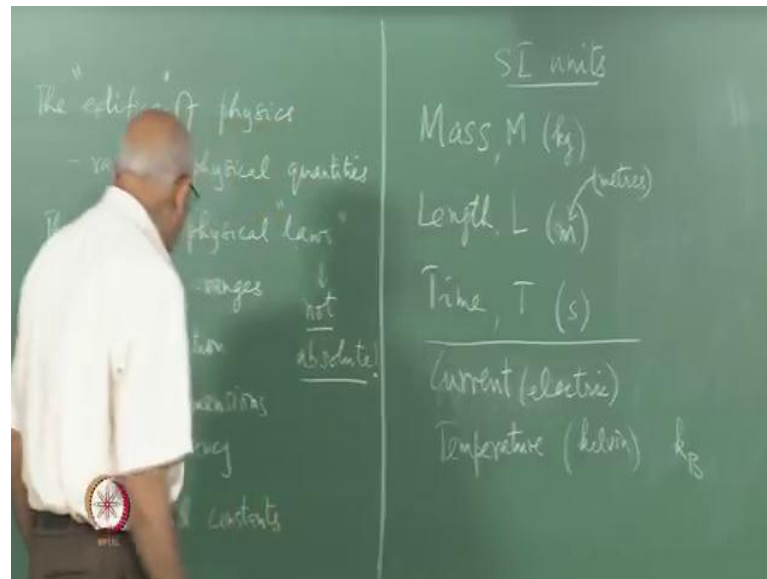 The "edifice" of physics
- physical quantities
physical "laws"
not
absolute!
constants
SI units
Mass, M (kg)
(metres)
Length, L (m)
Time, T (s)
Current (electric)
Temperature (kelvin) k_B